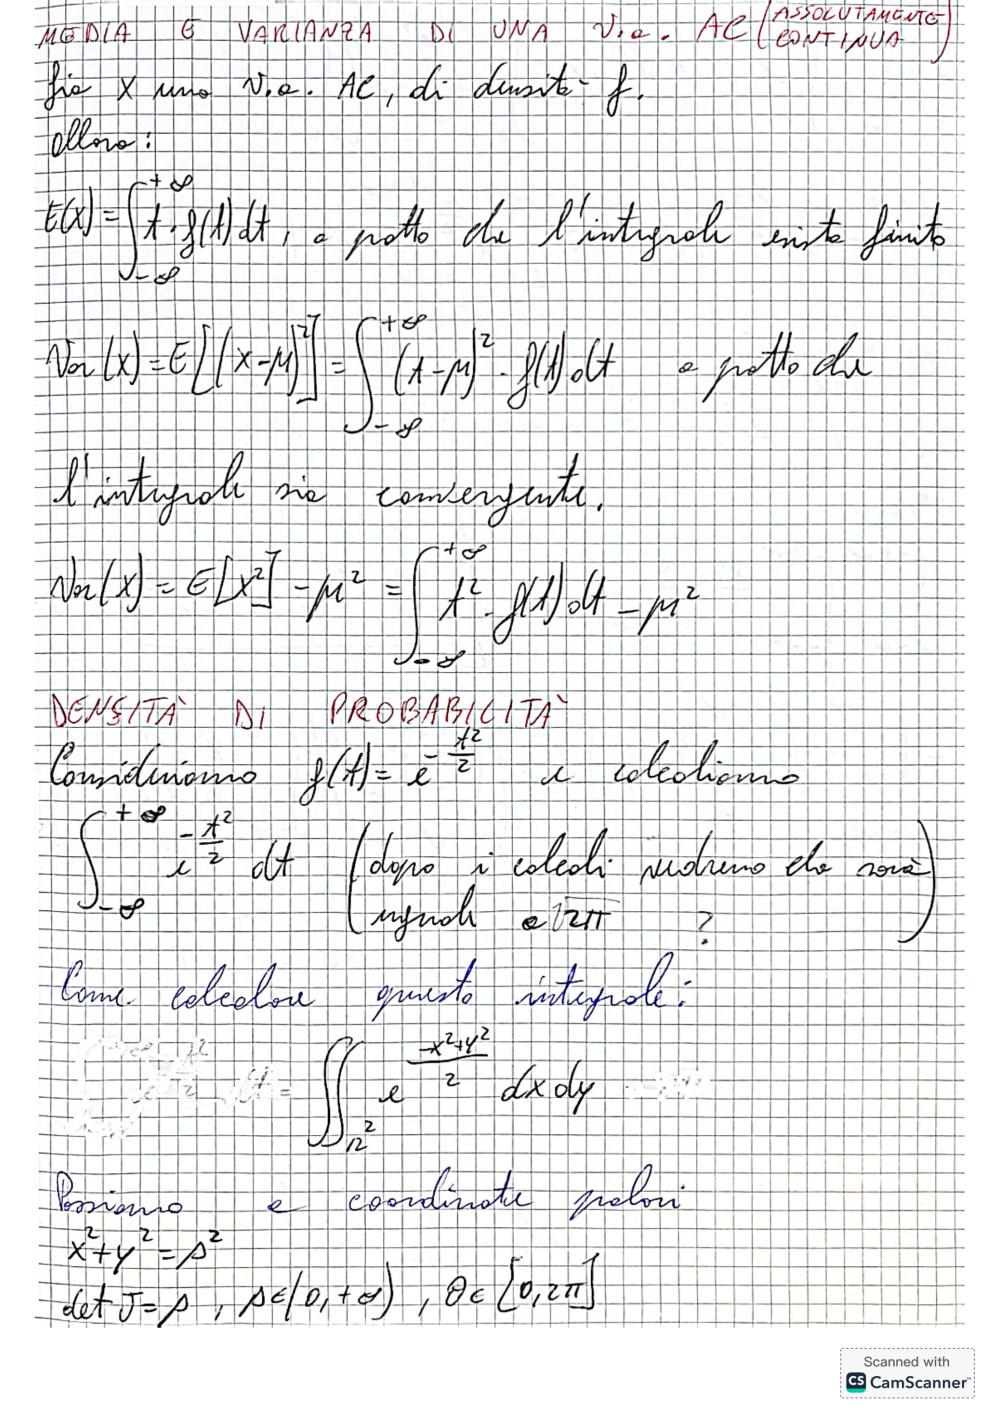 MEDIA E VARIANZA DI UNA v.a. AC (ASSOLUTAMENTE CONTINUA)
Sia X una v.a. AC, di densità f.
Allora:
E(X) = ∫_{-∞}^{+∞} t · f(t) dt, a patto che l'integrale esista finito
Var(X) = E[(X-μ)²] = ∫_{-∞}^{+∞} (t-μ)² · f(t) dt a patto che
l'integrale sia convergente.
Var(X) = E[X²] - μ² = ∫_{-∞}^{+∞} t² · f(t) dt - μ²
DENSITÀ DI PROBABILITÀ
Consideriamo f(t) = e^{-t²/2} e calcoliamo
∫_{-∞}^{+∞} e^{-t²/2} dt (dopo i calcoli vedremo che sarà
uguale a √2π ?)
Come calcolare questo integrale:
∬_{R²} e^{-x²+y²/2} dx dy
Passiamo a coordinate polari
x² + y² = ρ²
det J = ρ, ρ ∈ (0, +∞), θ ∈ [0, 2π]
Scanned with
CS CamScanner